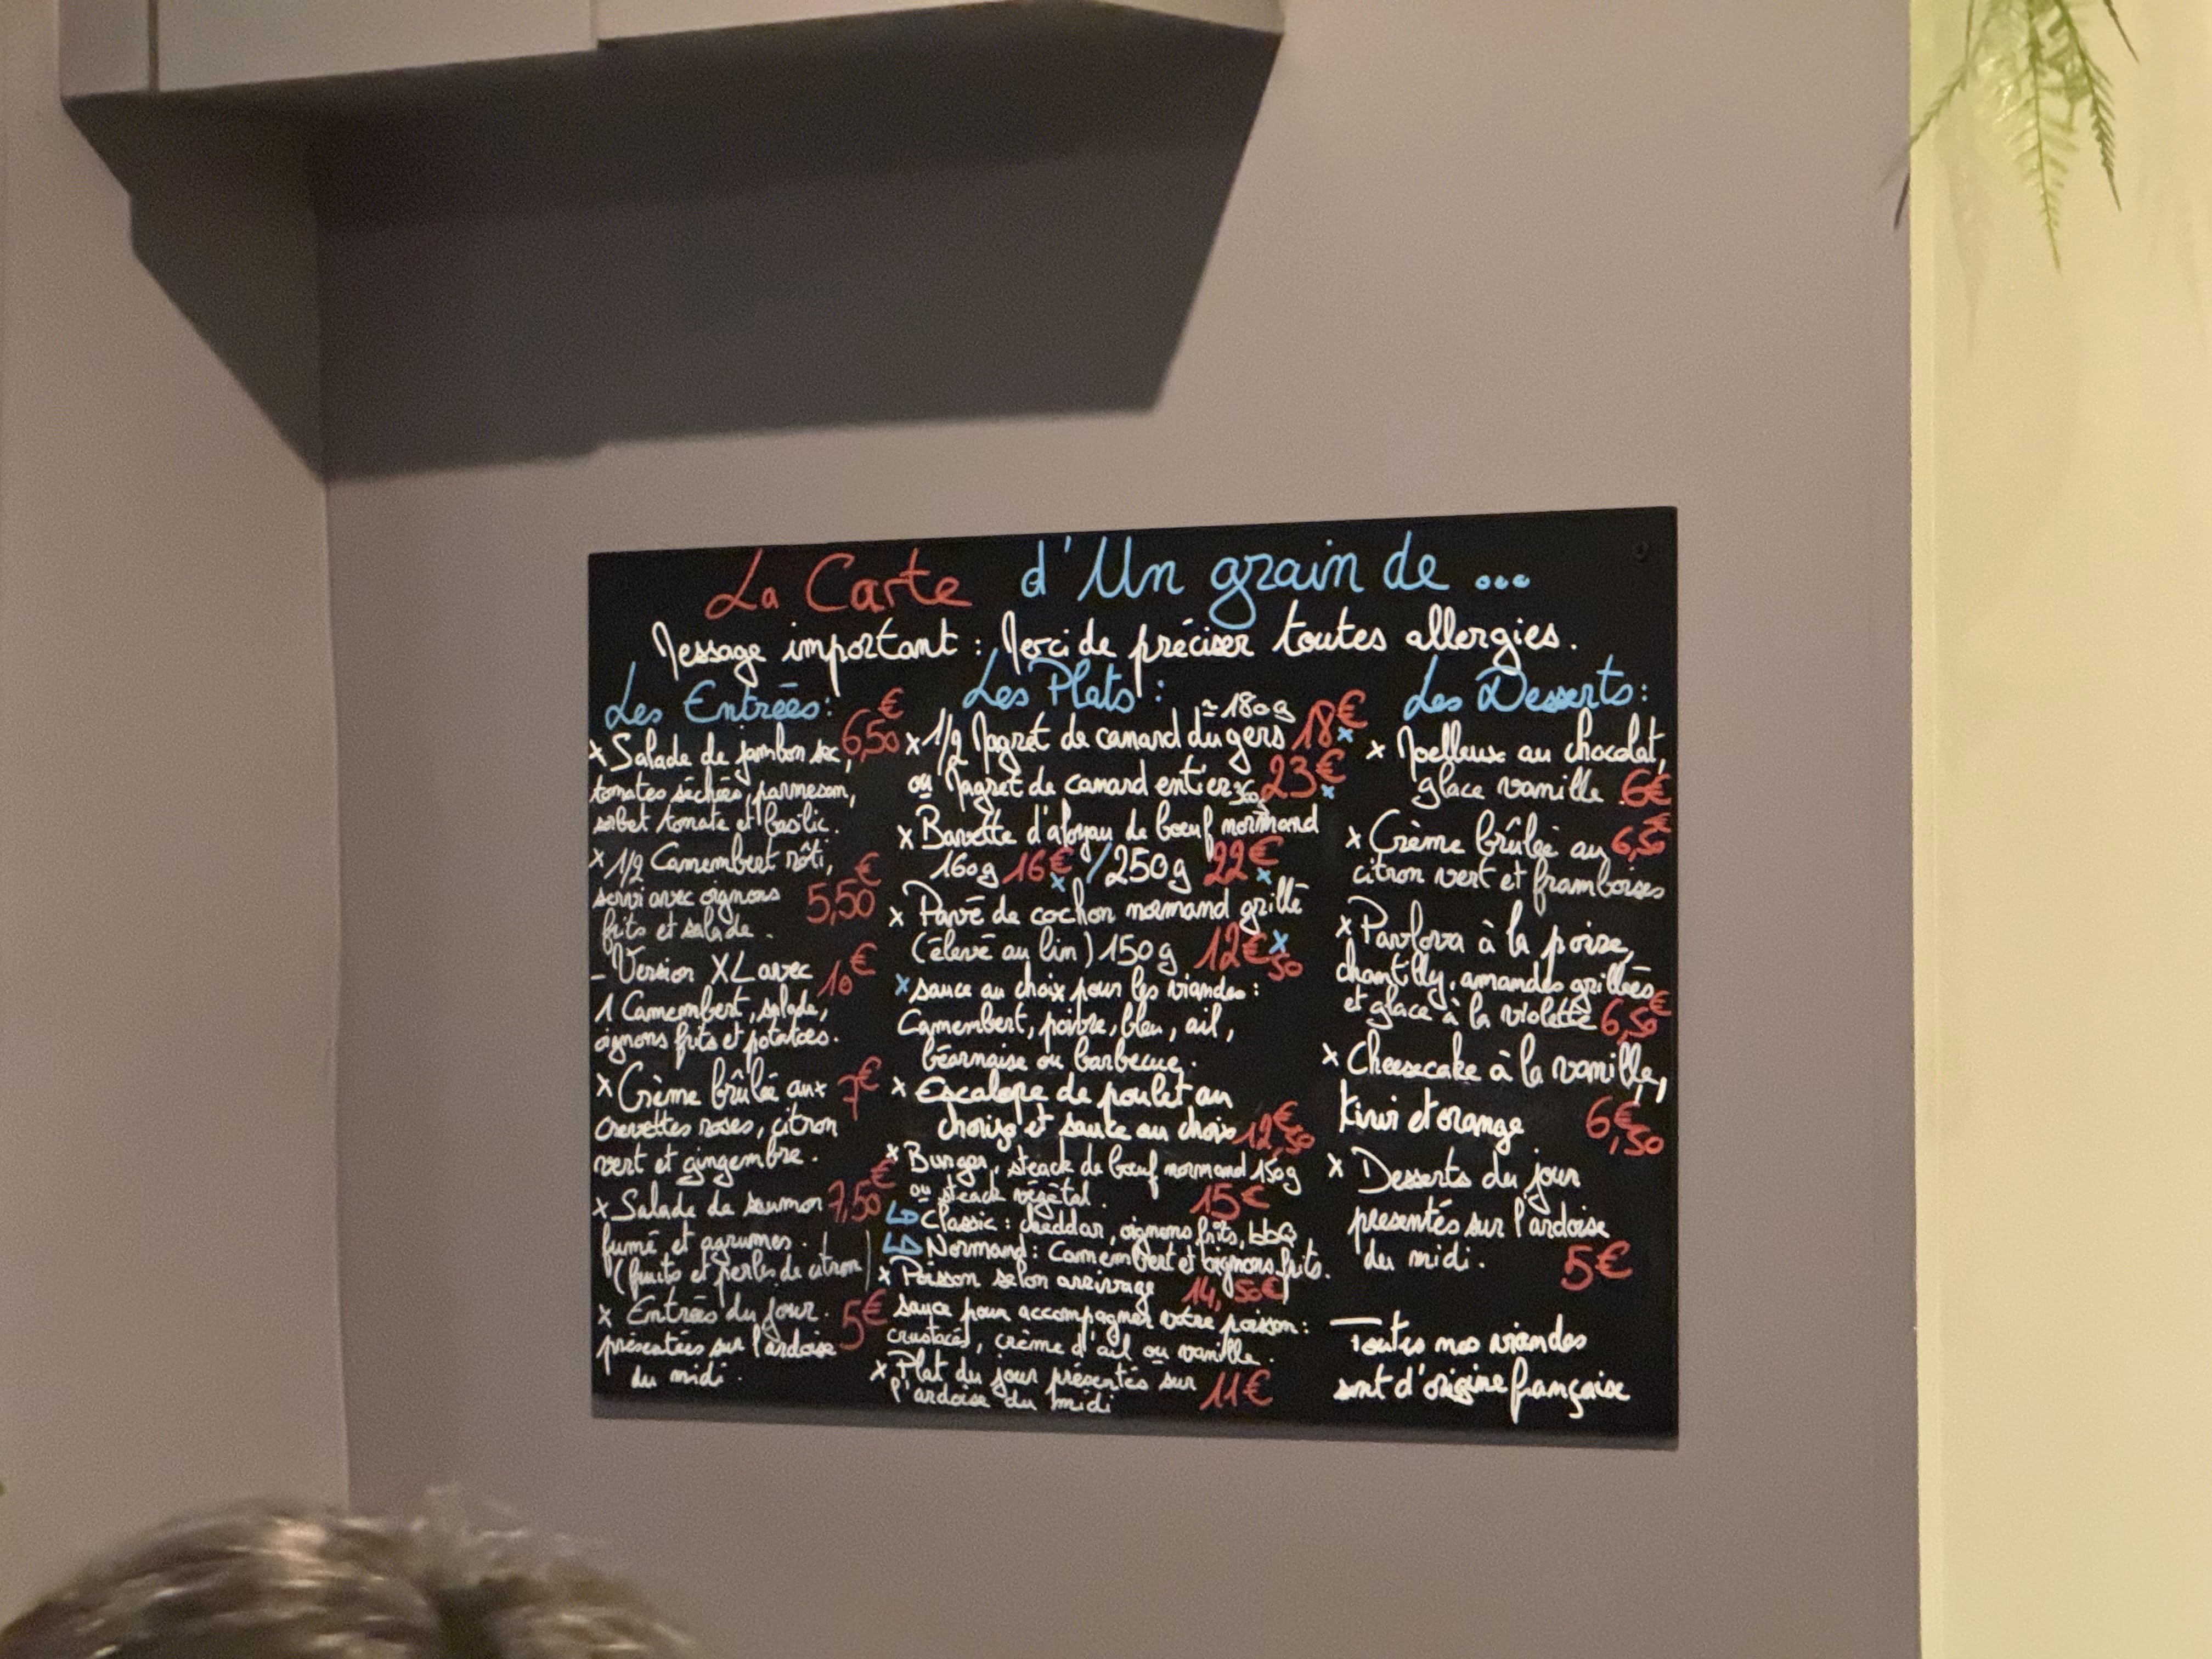 La Carte d'Un grain de ...
Message important : Merci de préciser toutes allergies.
Les Entrées:
x Salade de jambon sec, 6,50€
tomates séchées, parmesan,
sorbet tomate et basilic.
x 1/2 Camembert rôti,
servi avec oignons 5,50€
frits et salade.
- Version XL avec 10€
1 Camembert, salade,
oignons frits et potatoes.
x Crème brûlée aux 7€
crevettes roses, citron
vert et gingembre.
x Salade de saumon 7,50€
fumé et agrumes.
(fruits et perles de citron)
x Entrées du jour. 5€
présentées sur l'ardoise
du midi.
Les Plats :
≃180g
x 1/2 Magret de canard du gers 18€ x
ou Magret de canard entier 23€ x
x Bavette d'aloyau de boeuf normand
160g 16€ x / 250g 22€ x
x Pavé de cochon normand grillé
(élevé au lin) 150g 12€50 x
x sauce au choix pour les viandes :
Camembert, poivre, bleu, ail,
béarnaise ou barbecue.
x Escalope de poulet au
chorizo et sauce au choix 12,50€
x Burger, steack de boeuf normand 150g
ou steack végétal. 15€
↳ Classic : cheddar, oignons frits, bbQ
↳ Normand : Camembert et oignons frits.
x Poisson selon arrivage 14,50€
sauce pour accompagner votre poisson :
crustacés, crème d'ail ou vanille.
x Plat du jour présentés sur 11€
l'ardoise du midi
Les Desserts :
x Moelleux au chocolat,
glace vanille 6€
x Crème brûlée au 6,50€
citron vert et framboises
x Pavlova à la poire,
chantilly, amandes grillées
et glace à la violette 6,50€
x Cheesecake à la vanille,
kiwi et orange 6,50€
x Desserts du jour
presentés sur l'ardoise
du midi. 5€
Toutes nos viandes
sont d'origine française